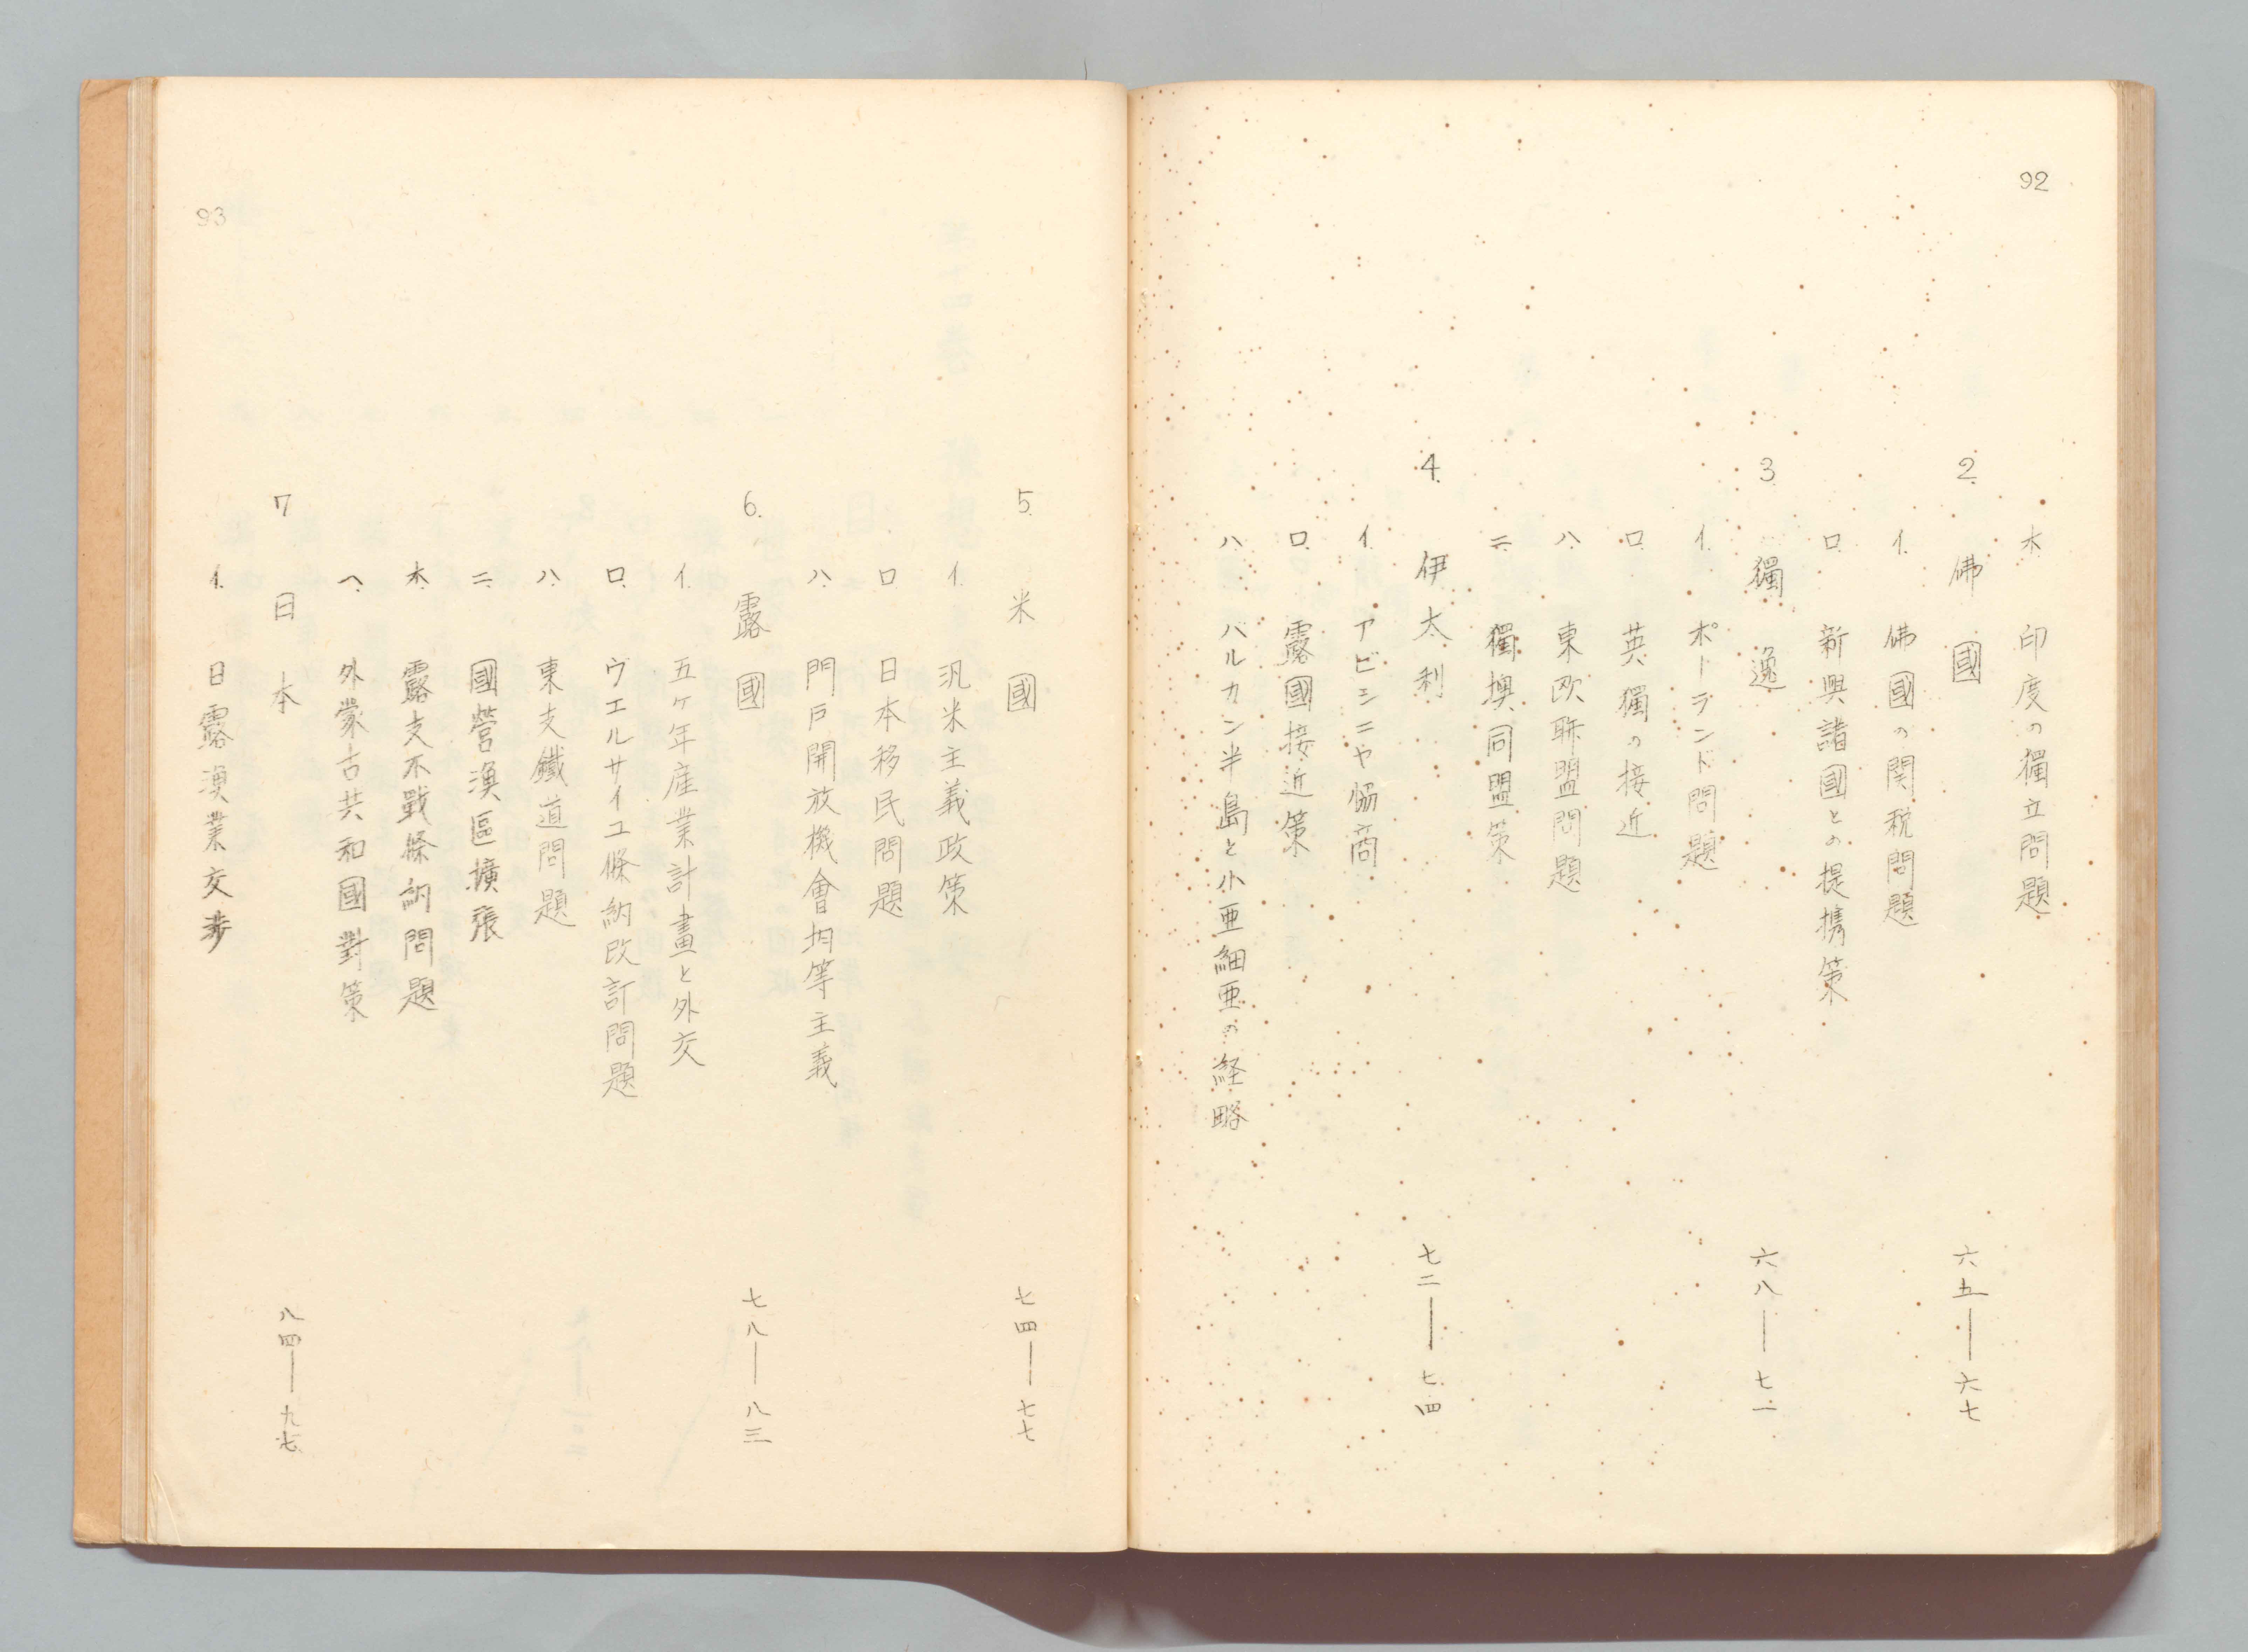 92
ホ. 印度の獨立問題
2. 佛國 六五—六七
イ. 佛國の関税問題
ロ. 新興諸國との提携策
3 獨逸 六八—七一
イ. ポーランド問題
ロ. 英獨の接近
ハ. 東欧聯盟問題
ニ. 獨墺同盟策
4. 伊太利 七二—七四
イ. アビシニヤ協商
ロ. 露國接近策
ハ. バルカン半島と小亜細亜の経略
5. 米國 七四—七七
イ. 汎米主義政策
ロ. 日本移民問題
ハ. 門戸開放機會均等主義
6. 露國 七八—八三
イ. 五ヶ年産業計畫と外交
ロ. ヴエルサイユ條約改訂問題
ハ. 東支鐵道問題
ニ. 國營漁區擴張
ホ. 露支不戰條約問題
ヘ. 外蒙古共和國對策
7 日本 八四—九七
イ. 日露漁業交渉
93